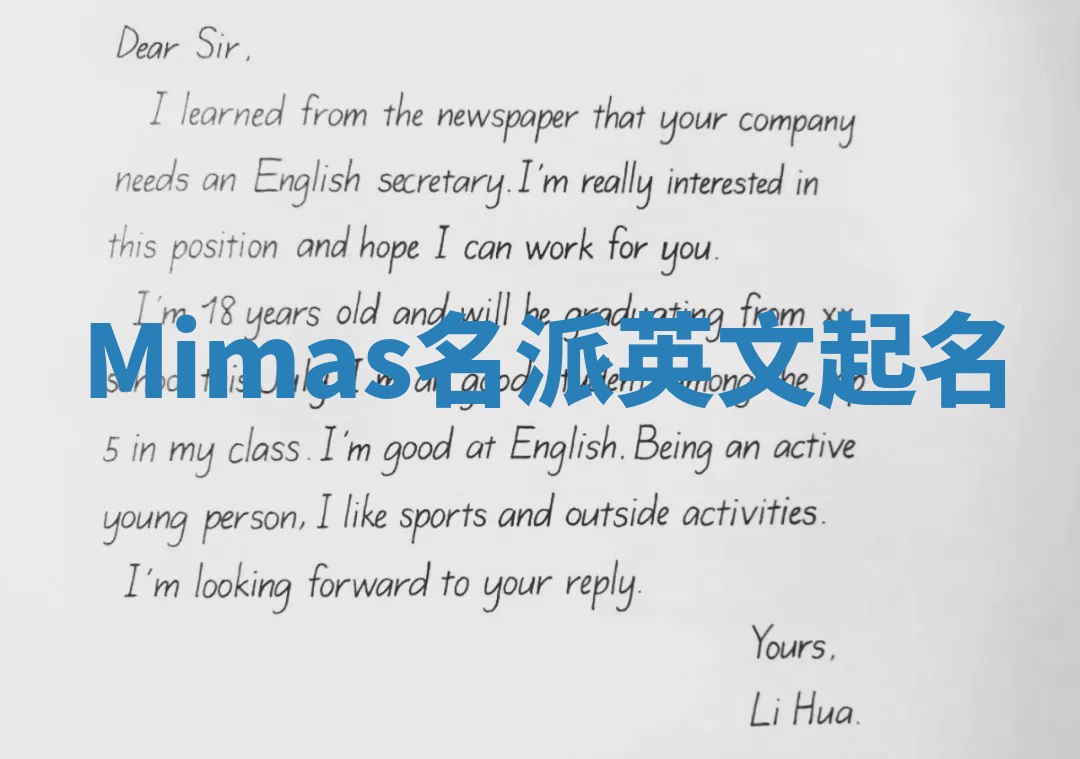 Dear Sir,
I learned from the newspaper that your company
needs an English secretary. I'm really interested in
this position and hope I can work for you.
I'm 18 years old and will be graduating from xx
Mimas名派英文起名
school this July. I'm a good student among the top
5 in my class. I'm good at English. Being an active
young person, I like sports and outside activities.
I'm looking forward to your reply.
Yours,
Li Hua.